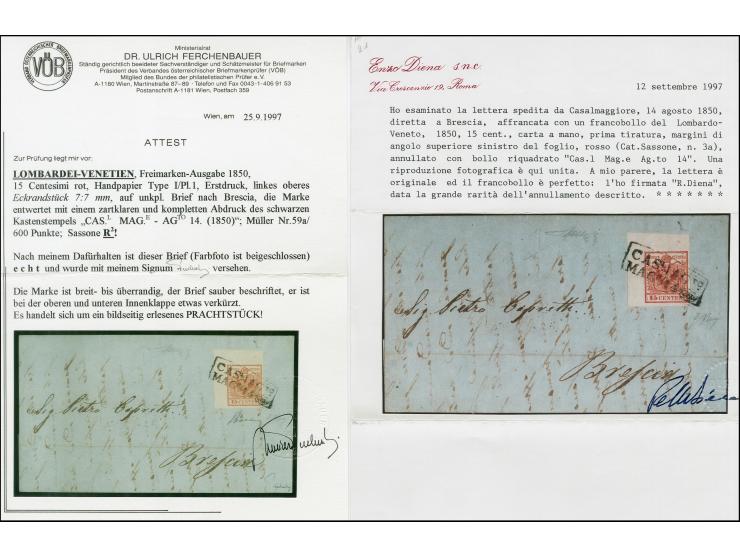 VÖB
Ministerialrat
DR. ULRICH FERCHENBAUER
Ständig gerichtlich beeideter Sachverständiger und Schätzmeister für Briefmarken
Präsident des Verbandes österreichischer Briefmarkenprüfer (VÖB)
Mitglied des Bundes der philatelistischen Prüfer e.V.
A-1180 Wien, Martinstraße 87–89 · Telefon und Fax 0043-1-406 91 53
Postanschrift A-1181 Wien, Postfach 359
Wien, am 25.9.1997
ATTEST
Zur Prüfung liegt mir vor:
LOMBARDEI-VENETIEN, Freimarken-Ausgabe 1850,
15 Centesimi rot, Handpapier Type I/Pl.1, Erstdruck, linkes oberes
Eckrandstück 7:7 mm, auf unkpl. Brief nach Brescia, die Marke
entwertet mit einem zartklaren und kompletten Abdruck des schwarzen
Kastenstempels „CAS.L MAG.E - AGTO 14. (1850)“; Müller Nr.59a/
600 Punkte; Sassone R2!
Nach meinem Dafürhalten ist dieser Brief (Farbfoto ist beigeschlossen)
echt und wurde mit meinem Signum versehen.
Die Marke ist breit- bis überrandig, der Brief sauber beschriftet, er ist
bei der oberen und unteren Innenklappe etwas verkürzt.
Es handelt sich um ein bildseitig erlesenes PRACHTSTÜCK!
CAS.L
MAG.E
Sig Pietro Capretti
Brescia
Enzo Diena s.n.c.
Via Crescenzio 19, Roma
12 settembre 1997
Ho esaminato la lettera spedita da Casalmaggiore, 14 agosto 1850,
diretta a Brescia, affrancata con un francobollo del Lombardo-
Veneto, 1850, 15 cent., carta a mano, prima tiratura, margini di
angolo superiore sinistro del foglio, rosso (Cat.Sassone, n. 3a),
annullato con bollo riquadrato "Cas.l Mag.e Ag.to 14". Una
riproduzione fotografica è qui unita. A mio parere, la lettera è
originale ed il francobollo è perfetto: l'ho firmata "R.Diena",
data la grande rarità dell'annullamento descritto. * * * * * * *
CAS.L
MAG.E
15 CENTES
Sig Pietro Capretti
Brescia